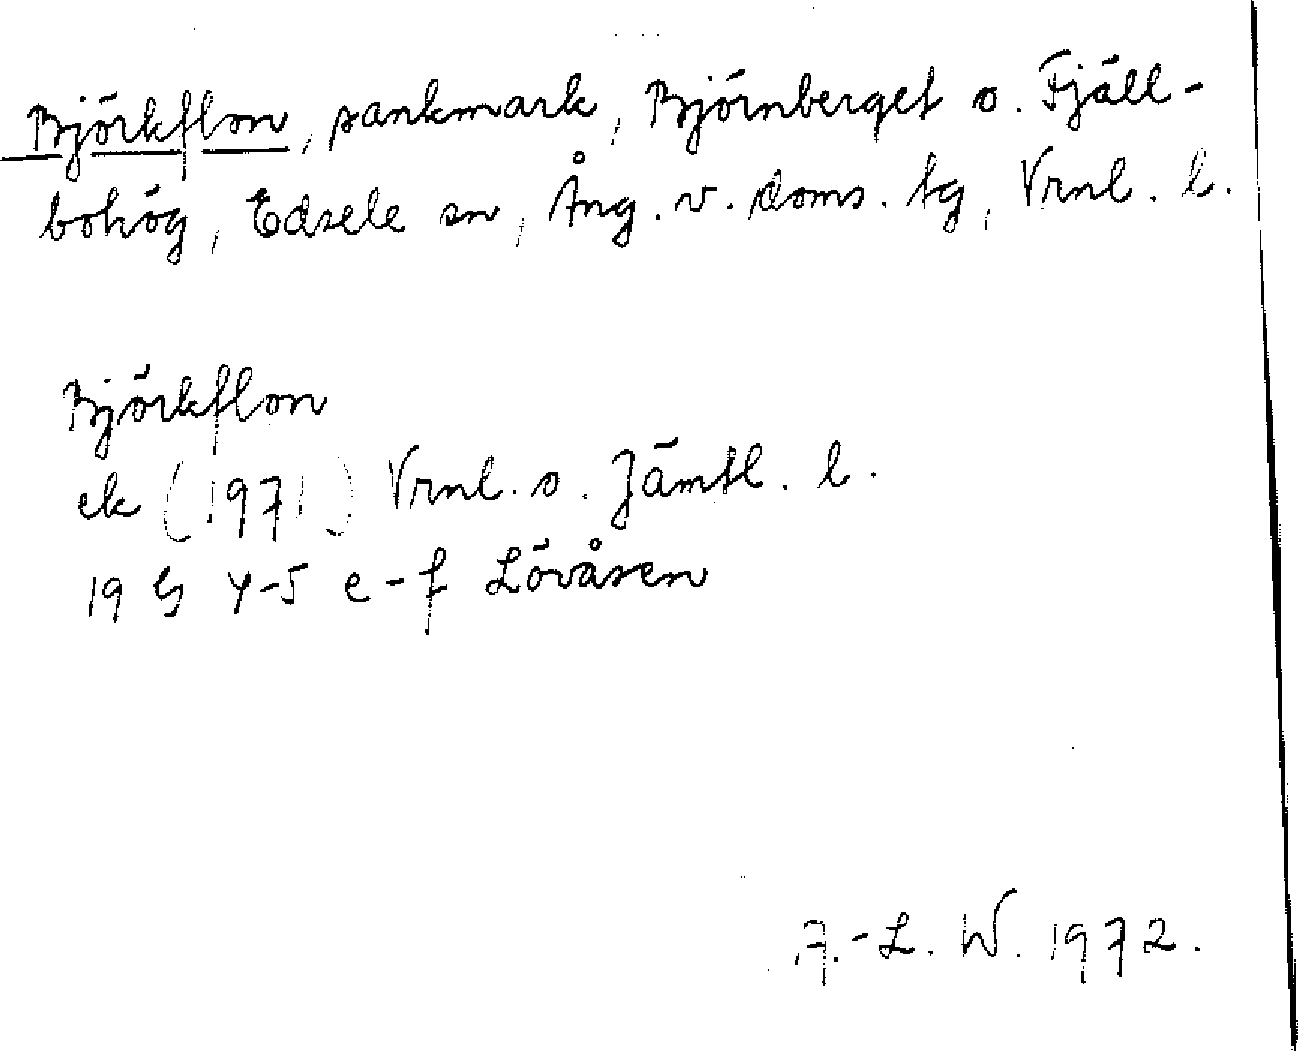 Björkflon, sankmark, Björnberget o. Fjäll-
bohög, Edsele sn, Ång. v. doms. tg, Vrnl. l.
Björkflon
ek (1971) Vrnl. o. Jämtl. l.
19 G 4-5 e-f Lövåsen
A.-L. W. 1972.